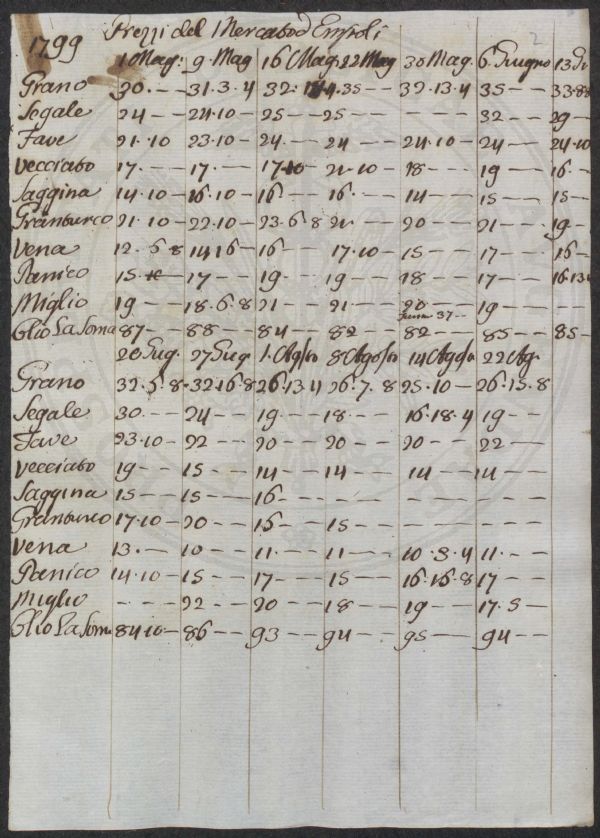 Prezzi del Mercato d'Empoli 2
1799 1 Mag: 9 Mag 16 Mag. 22 Mag 30 Mag. 6 Giugno 13 Gi
Grano 30.-- 31.3.4 32. 4.35-- 32.13.4 35-- 33.8.8
Segale 24-- 24.10- 25-- 25--- --- 32-- 29-
Fave 21.10 23.10- 24.-- 24-- 24.10- 24-- 24.10
Vecciato 17.-- 17.-- 17.10 21.10 18-- 19-- 16--
Saggina 14.10- 16.10- 16-- 16.-- 14-- 15-- 15--
Granturco 21.10- 22.10- 23.6.8 21.-- 20-- 21-- 19-
Vena 12.6.8 14.16- 16-- 17.10- 15-- 17-- 16-
Panico 15. 17-- 19-- 19-- 18-- 17-- 16.13.4
Miglio 19-- 18.6.8 21-- 21-- 20-- 19--
Olio La Soma 87-- 88-- 84-- 82-- 82-- 85-- 85-
20 Giug. 27 Giug 1. Agosto 8 Agosto 14 Agosto 22 Ag.
Grano 32.5.8- 32.16.8 26.13.4 26.7.8 25.10- 26.15.8
Segale 30.-- 24-- 19.-- 18.-- 16.18.4 19--
Fave 23.10- 22-- 20-- 20-- 20-- 22--
Vecciato 19-- 15-- 14-- 14-- 14-- 14--
Saggina 15-- 15-- 16---
Granturco 17.10- 20-- 16-- 15---
Vena 13.-- 10-- 11.-- 11-- 10.3.4 11.--
Panico 14.10- 15-- 17-- 15-- 16.16.8 17--
Miglio --- 22-- 20-- 18-- 19-- 17.5-
Olio La Soma 84.10- 86-- 93-- 94-- 95-- 94--